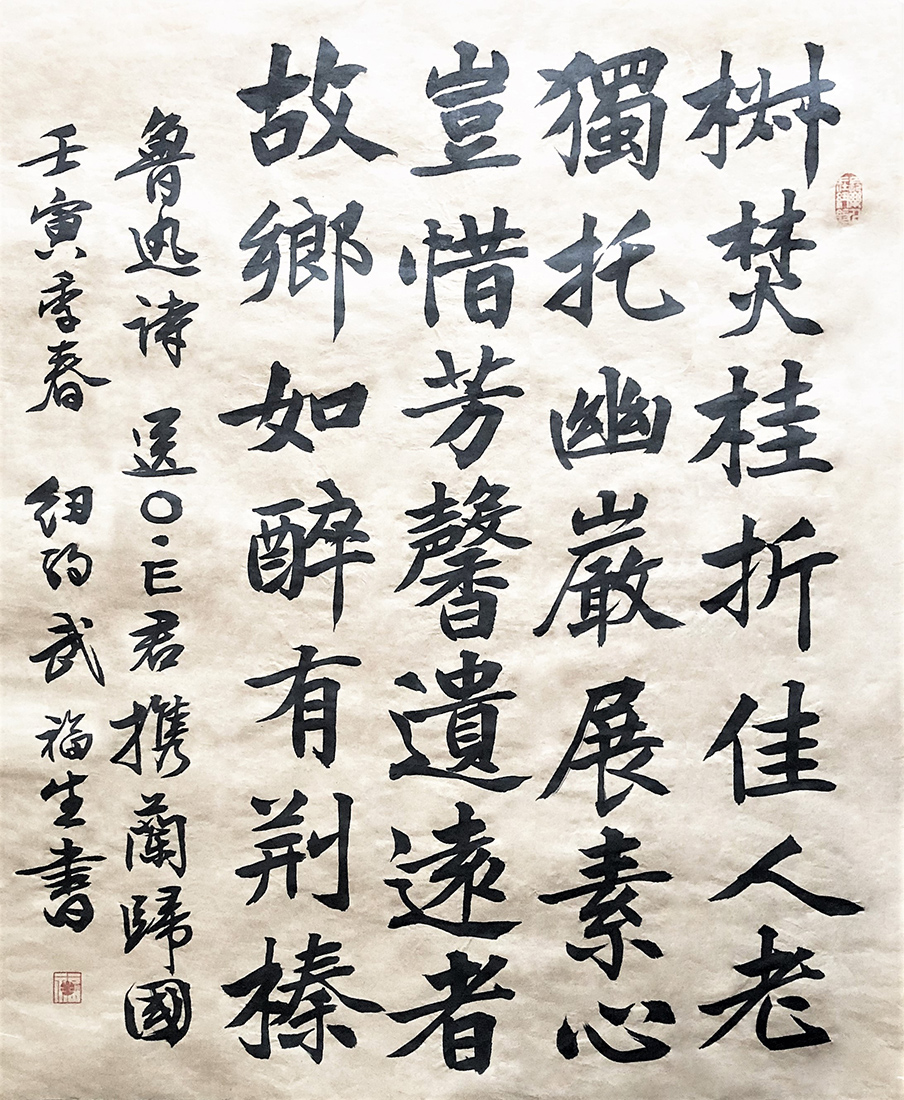 椒焚桂折佳人老
獨托幽巖展素心
豈惜芳馨遺遠者
故鄉如醉有荆榛
魯迅诗 送O.E君携蘭歸國
壬寅季春 纽约武福生書